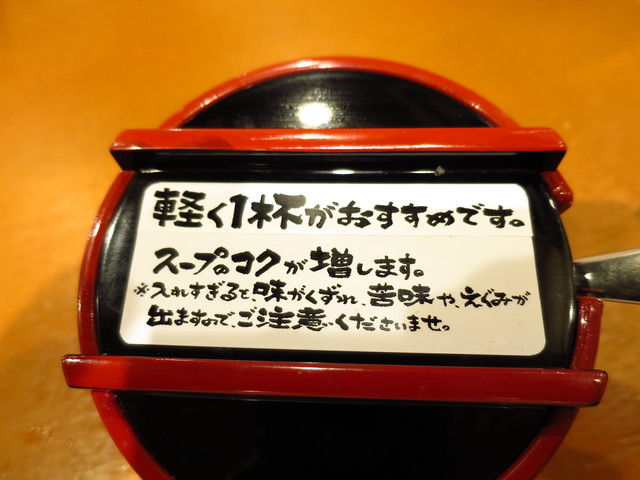 軽く1杯がおすすめです。
スープのコクが増します。
※入れすぎると、味がくずれ、苦味や、えぐみが
出ますので、ご注意くださいませ。